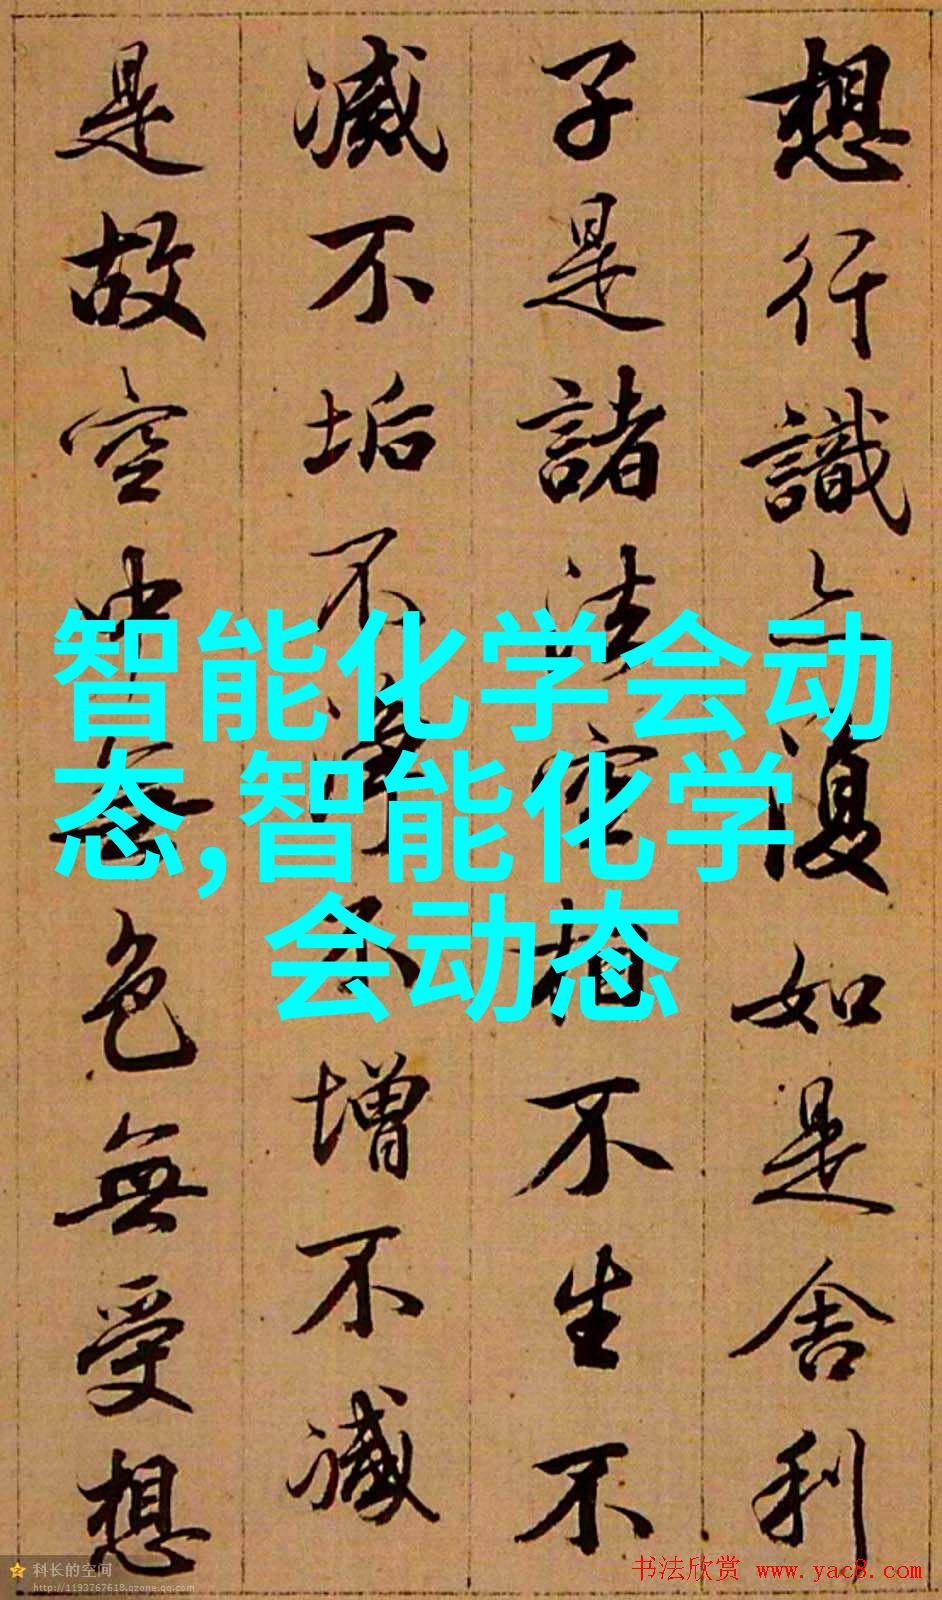 想行識亦復如是舍利
子是諸法空相不生不
滅不垢不淨不增不減
是故空中無色無受想
智能化学会动
态,智能化学
会动态
科长的空间
http://1193767618.qzone.qq.com
书法欣赏 www.yac8.com